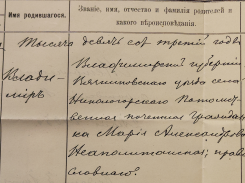 Имя родившагося.
Званіе, имя, отчество и фамилія родителей и какого вѣроисповѣданія.
Тысяча девять сот третій годъ
Влади-
міръ
Владимирской губерніи
Вязниковского уѣзда села
Никологорского Потомст-
венная почетная граждан-
ка Марія Александровна
православнаго